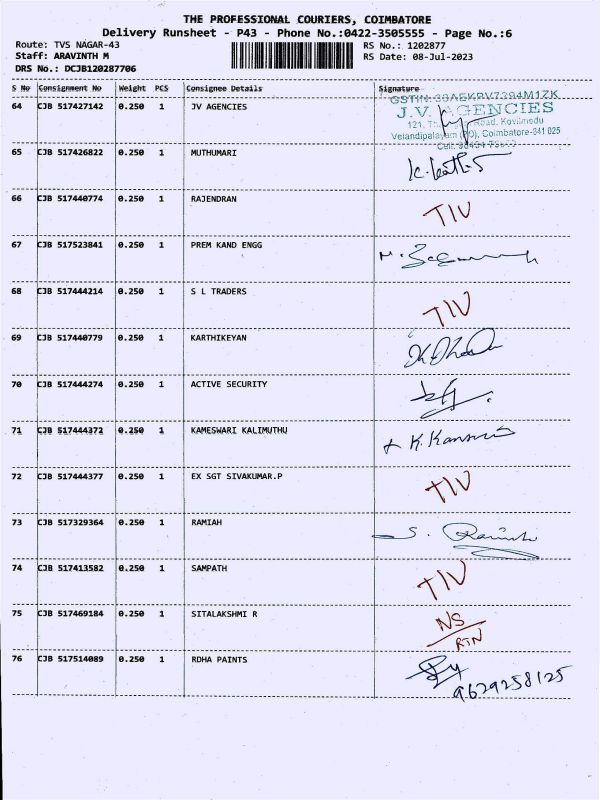 THE PROFESSIONAL COURIERS, COIMBATORE
Delivery Runsheet - P43 - Phone No.:0422-3505555 - Page No.:6
Route: TVS NAGAR-43
RS No.: 1202877
Staff: ARAVINTH M
RS Date: 08-Jul-2023
DRS No.: DCJB120287706
S No Consignment No Weight PCS Consignee Details Signature
64 CJB 517427142 0.250 1 JV AGENCIES
J.V. AGENCIES
121, Road, Kovilmedu
Velandipalayam (PO), Coimbatore-641 025
Cell:
65 CJB 517426822 0.250 1 MUTHUMARI
66 CJB 517440774 0.250 1 RAJENDRAN TIV
67 CJB 517523841 0.250 1 PREM KAND ENGG
68 CJB 517444214 0.250 1 S L TRADERS TIV
69 CJB 517440779 0.250 1 KARTHIKEYAN
70 CJB 517444274 0.250 1 ACTIVE SECURITY
71 CJB 517444372 0.250 1 KAMESWARI KALIMUTHU
72 CJB 517444377 0.250 1 EX SGT SIVAKUMAR.P TIV
73 CJB 517329364 0.250 1 RAMIAH
74 CJB 517413582 0.250 1 SAMPATH TIV
75 CJB 517469184 0.250 1 SITALAKSHMI R NS
RTN
76 CJB 517514089 0.250 1 RDHA PAINTS
9629258125